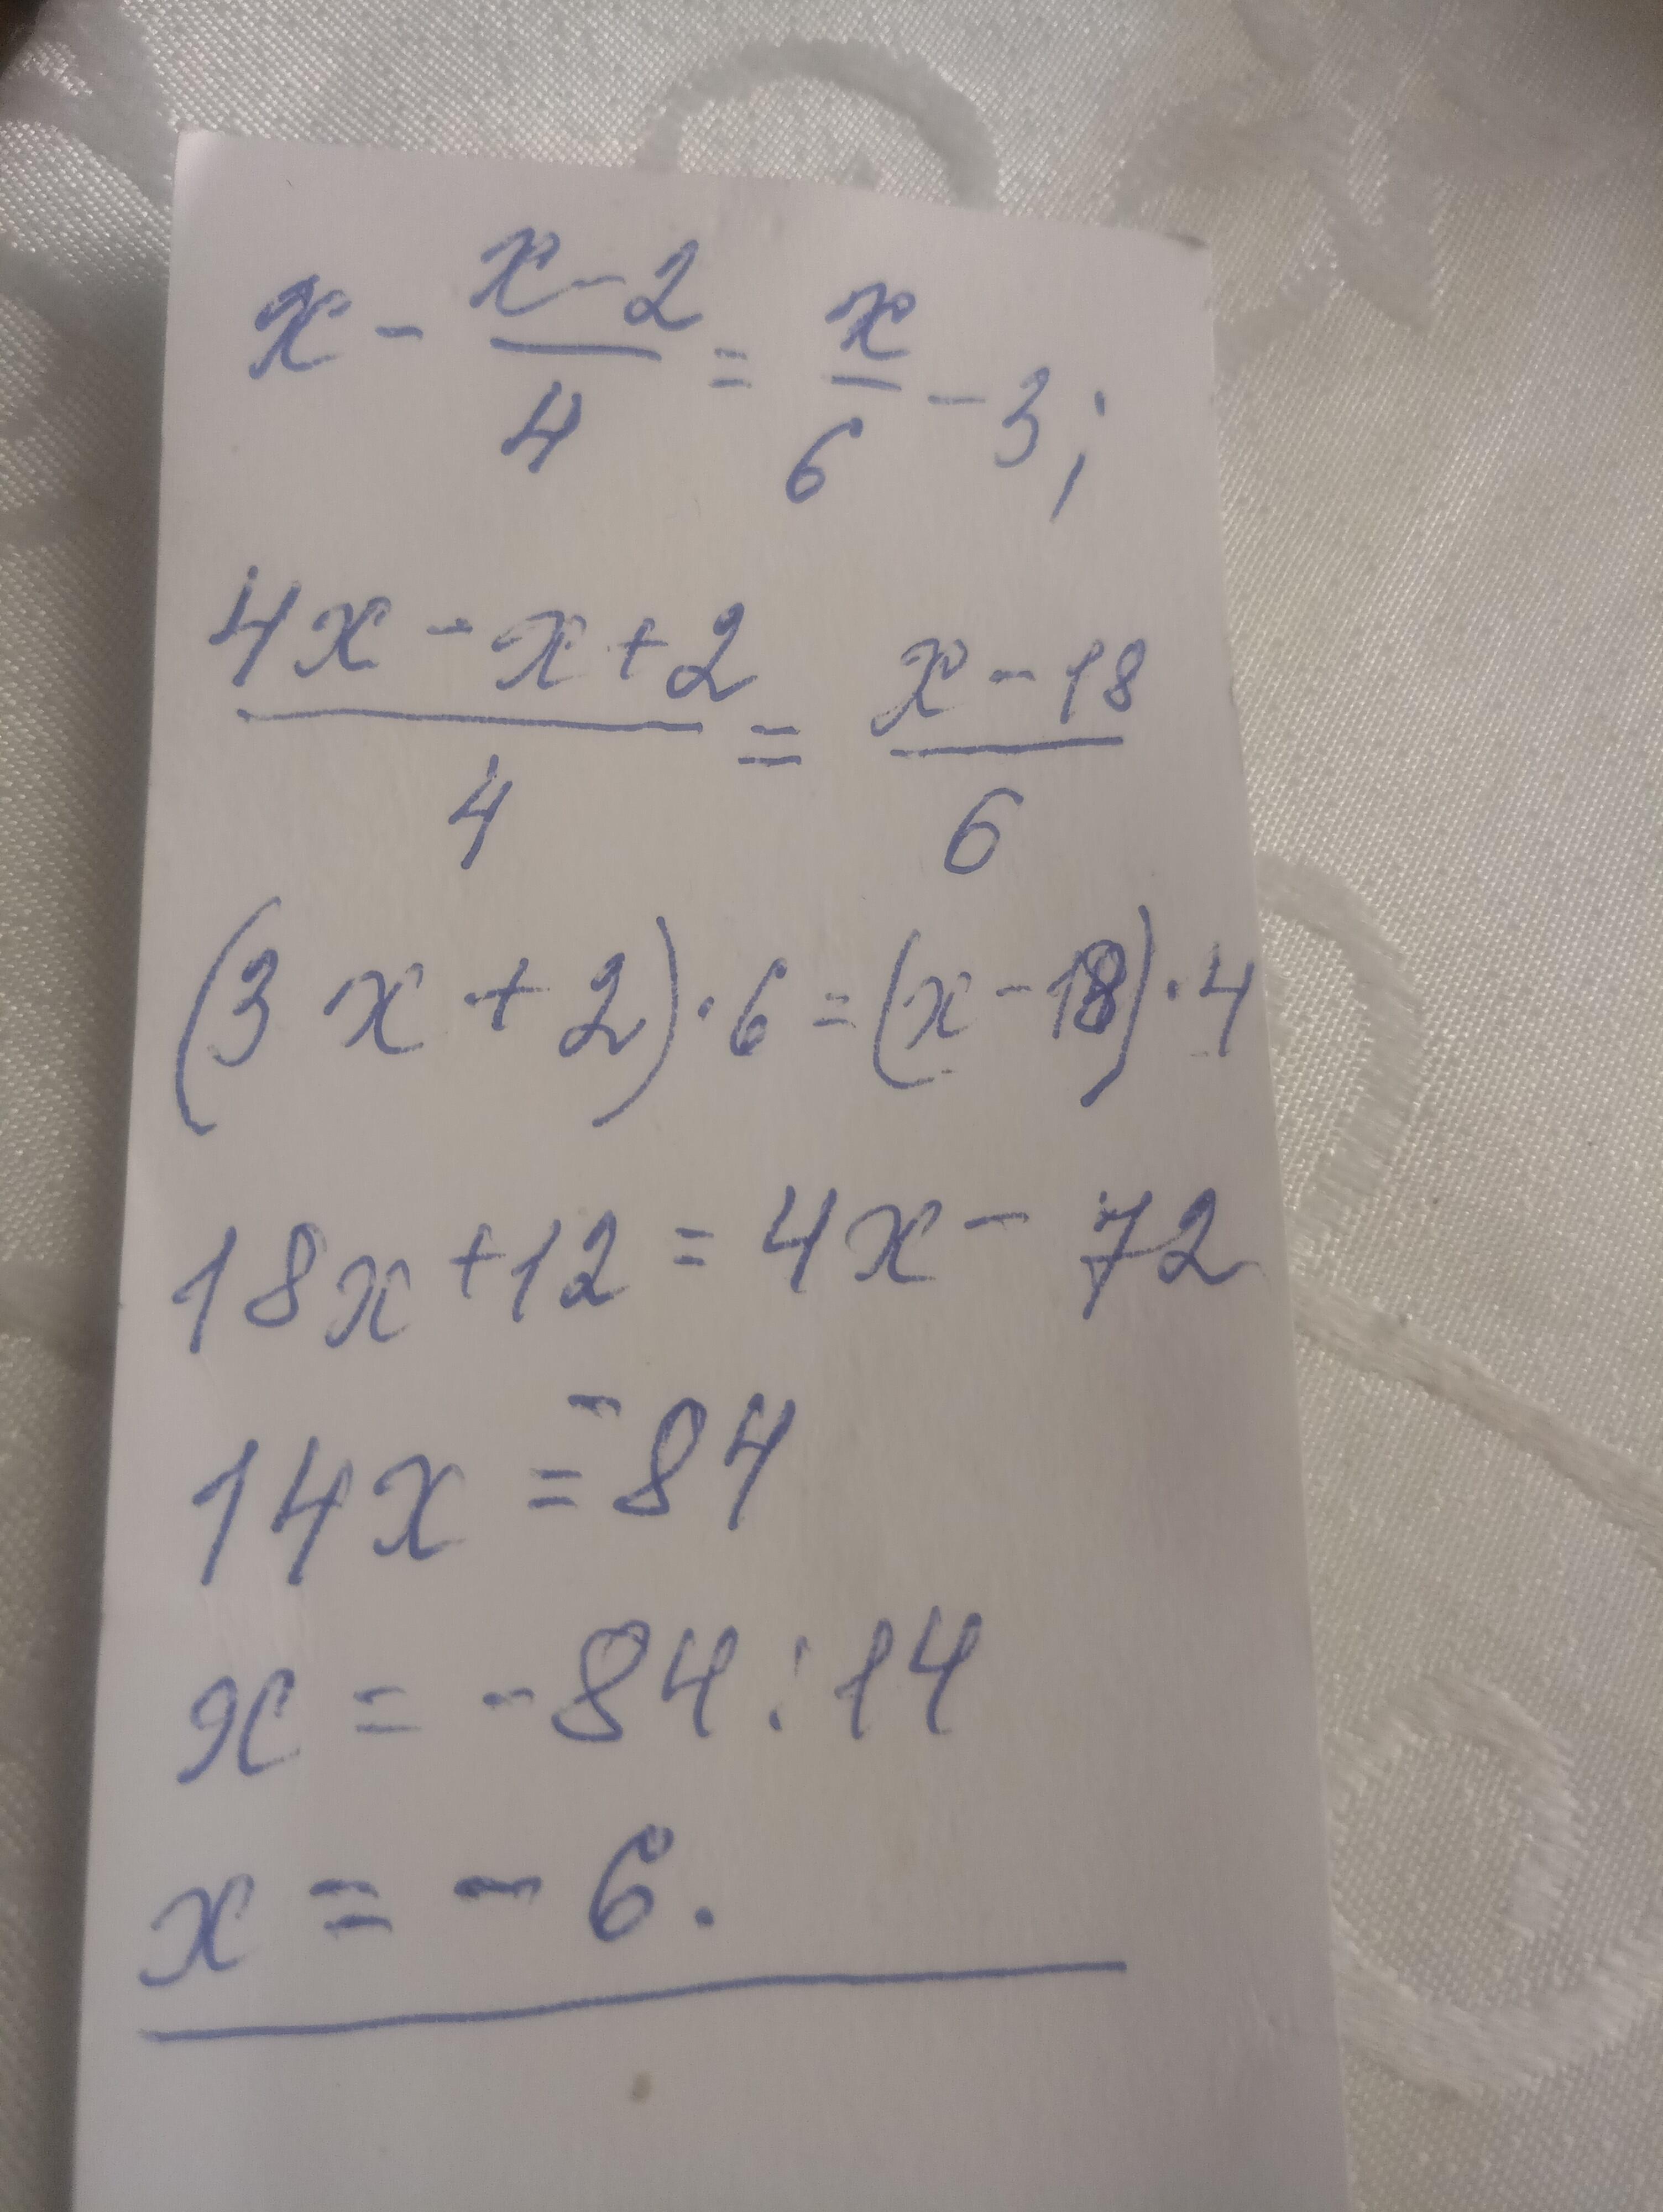 x - (x-2)/4 = x/6 - 3;
(4x - x + 2)/4 = (x - 18)/6
(3x + 2) · 6 = (x - 18) · 4
18x + 12 = 4x - 72
14x = -84
x = -84 : 14
x = -6.